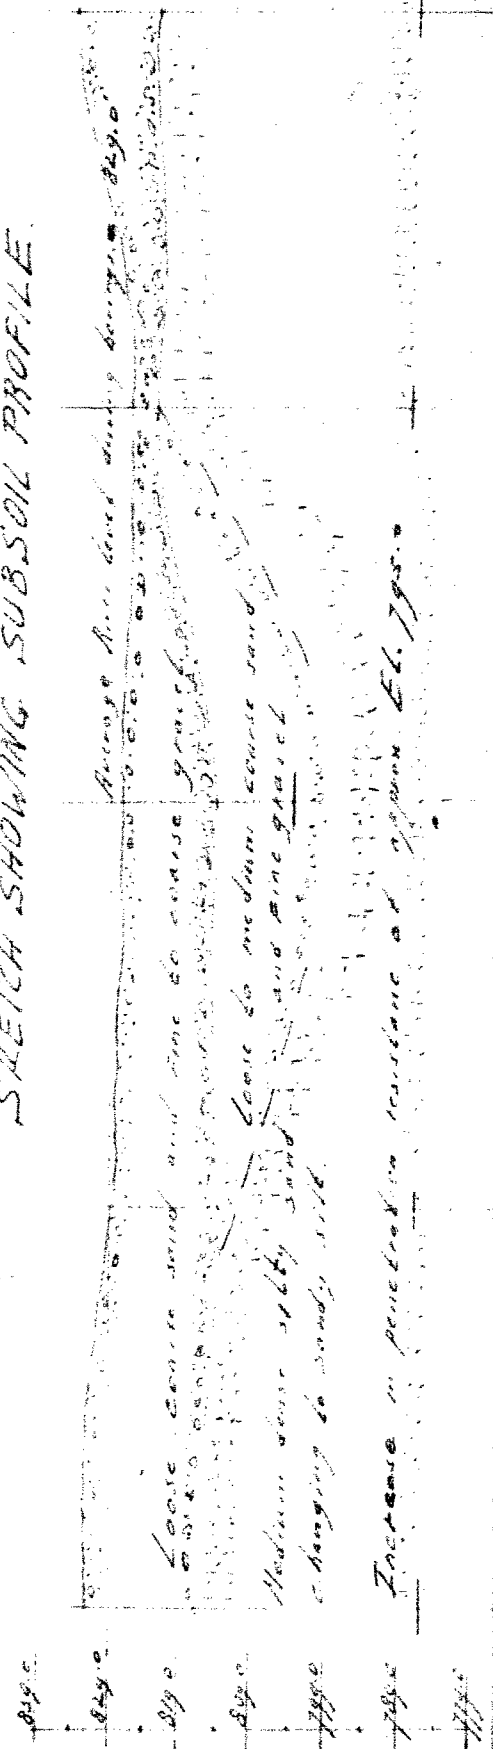 SKETCH SHOWING SUBSOIL PROFILE.
Average River level during borings 829.0
Loose coarse sand and fine to coarse gravel
Loose to medium coarse sand
and fine gravel
Medium dense silty sand
changing to sandy silt.
Increase in penetration resistance at approx El. 795.0
839.0
829.0
819.0
809.0
799.0
789.0
779.0